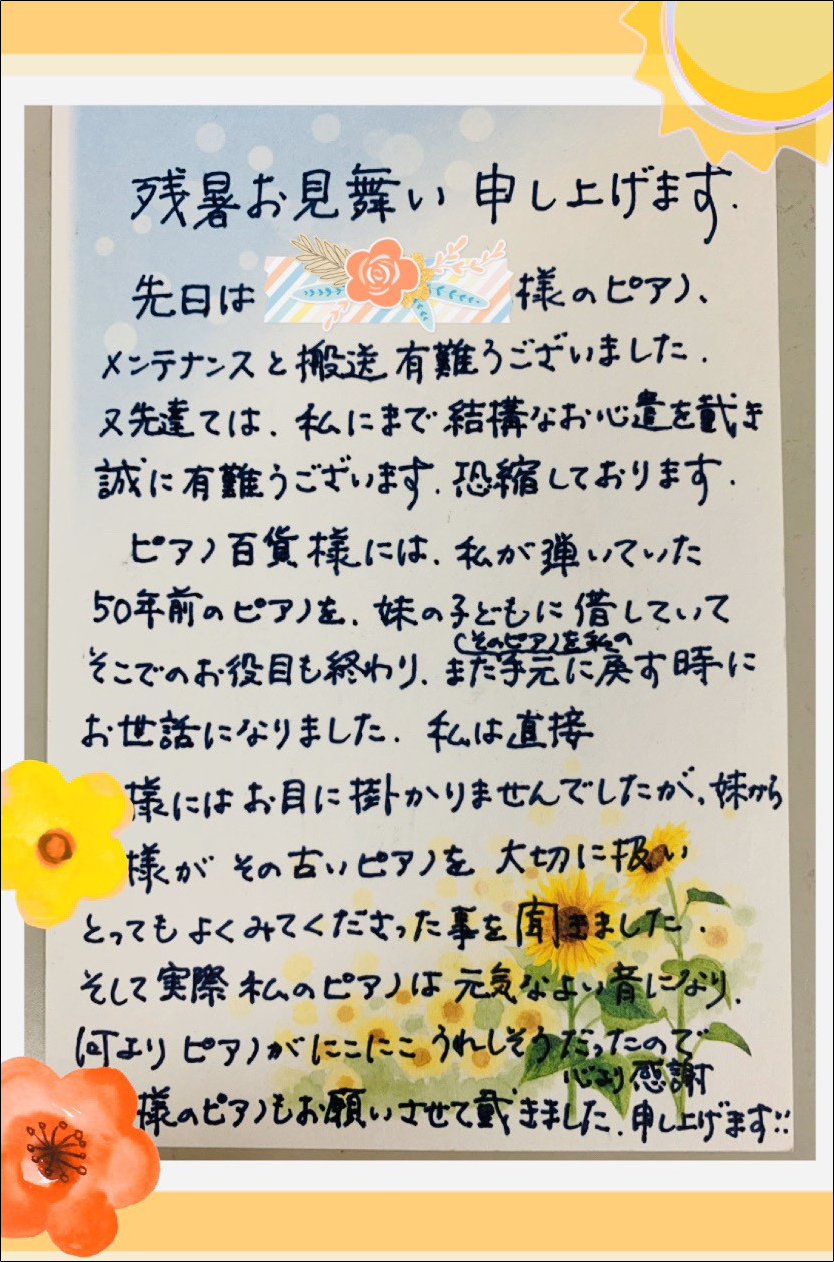 残暑お見舞い申し上げます.
先日は 様のピアノ、
メンテナンスと搬送有難うございました.
又先達ては、私にまで結構なお心遣を戴き
誠に有難うございます.恐縮しております.
ピアノ百貨様には、私が弾いていた
50年前のピアノを、妹の子どもに借していて
(そのピアノを私の
そこでのお役目も終わり、また手元に戻す時に
お世話になりました.私は直接
様にはお目に掛かりませんでしたが、妹から
様がその古いピアノを大切に扱い
とってもよくみてくださった事を聞きました.
そして実際私のピアノは元気なよい音になり、
何よりピアノがにこにこうれしそうだったので
心より感謝
様のピアノもお願いさせて戴きました.申し上げます!!